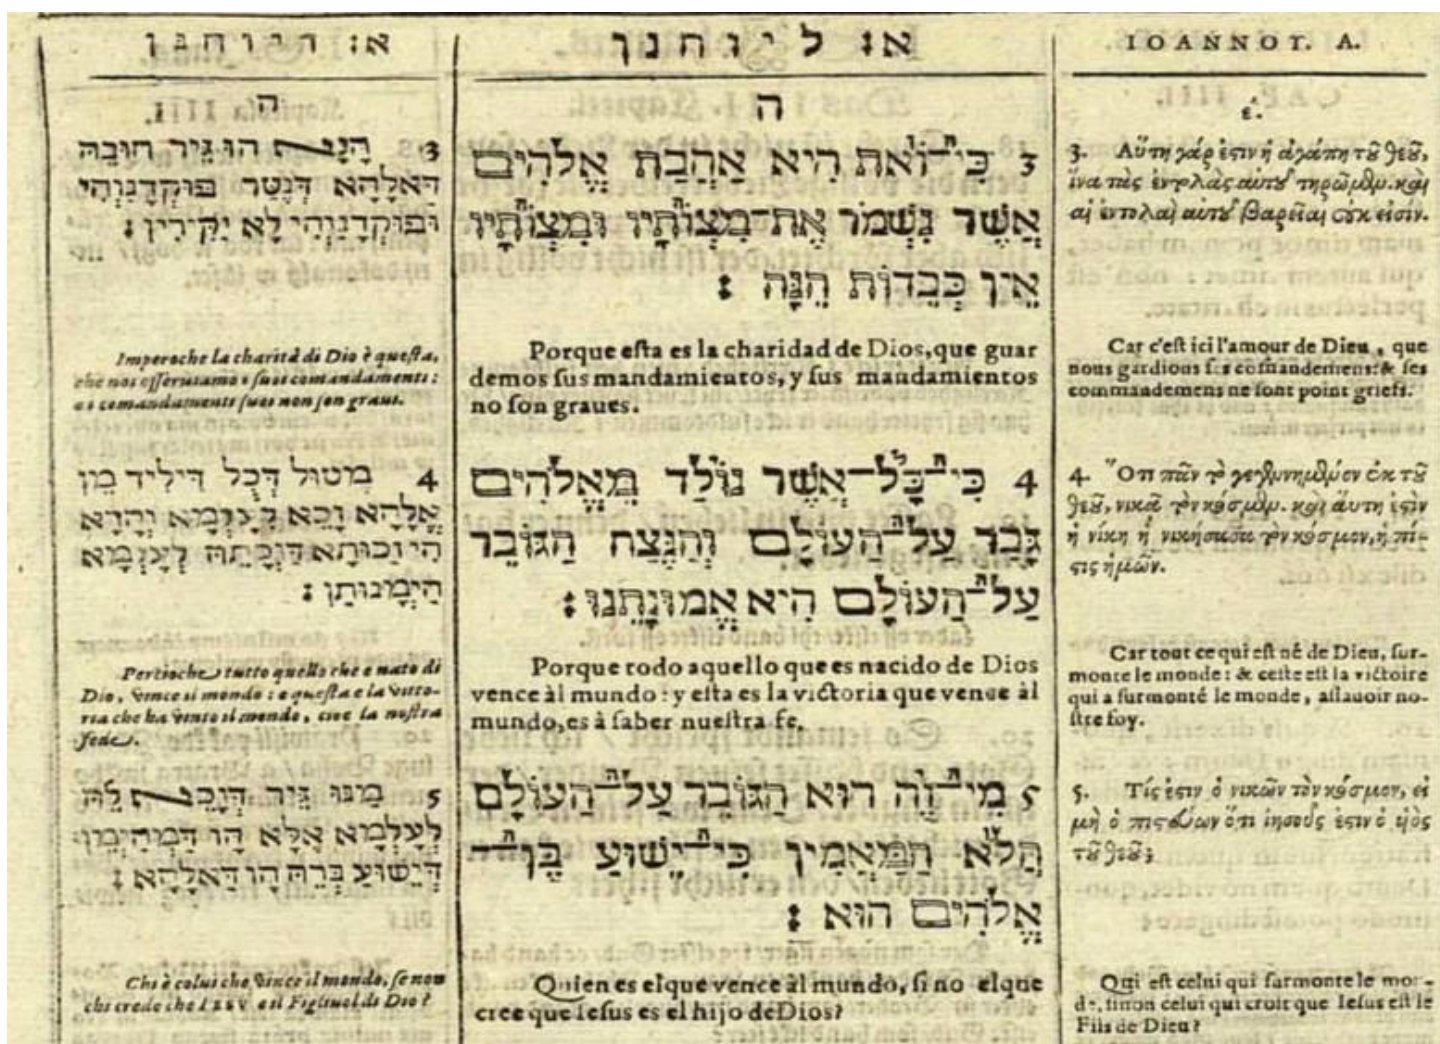 א׃ דיוחנן
ה
3 הָנָא הו גֵּיר חוּבֵּהּ
דַּאלָהָא דְּנֶטַּר פּוּקְדָנַוְהִי
וּפוּקְדָנַוְהִי לָא יַקִּירִין׃
Imperoche la charità di Dio è questa,
che noi osseruiamo i suoi comandamenti:
& i comandamenti suoi non son graui.
4 מִטּוּל דְּכָל דִּילִיד מֵן
אֲלָהָא זָכֵא לְעָלְמָא וְהָדָא
הִי זָכוּתָא דַּזְכָתֵהּ לְעָלְמָא
הַיְמָנוּתַן׃
Percioche tutto quello che e nato di
Dio, vince il mondo: e questa e la vitto-
ria che ha vinto il mondo, cioe la nostra
fede.
5 מַנוּ גֵּיר דְּזָכֵא לֵהּ
לְעָלְמָא אֶלָּא הַו דַּמְהַימֵן
דְּיֵשׁוּעַ בְּרֵהּ הֿו דַּאלָהָא׃
Chi è colui che vince il mondo, se non
chi crede che IESV è il Figliuol di Dio?
א׃ ליוחנן
ה
3 כִּי־זֹאת הִיא אַהֲבַת אֱלֹהִים
אֲשֶׁר נִשְׁמֹר אֶת־מִצְוֹתָיו וּמִצְוֹתָיו
אֵין כְּבֵדוֹת הֵנָּה׃
Porque esta es la charidad de Dios, que guar
demos sus mandamientos, y sus mandamientos
no son graues.
4 כִּי־כָּל־אֲשֶׁר נוֹלַד מֵאֱלֹהִים
גָּבַר עַל־הָעוֹלָם וְהַנֶּצַח הַגּוֹבֵר
עַל־הָעוֹלָם הִיא אֱמוּנָתֵנוּ׃
Porque todo aquello que es nacido de Dios
vence àl mundo: y esta es la victoria que vence àl
mundo, es à saber nuestra fe.
5 מִי־זֶה הוּא הַגּוֹבֵר עַל־הָעוֹלָם
הֲלֹא הַמַּאֲמִין כִּי־יֵשׁוּעַ בֶּן־
אֱלֹהִים הוּא׃
Quien es el que vence àl mundo, si no el que
cree que Iesus es el hijo de Dios?
IOANNOT. A.
έ.
3. Αὕτη γάρ ἐστιν ἡ ἀγάπη τοῦ θεοῦ,
ἵνα τὰς ἐντολὰς αὐτοῦ τηρῶμεν. καὶ
αἱ ἐντολαὶ αὐτοῦ βαρεῖαι οὐκ εἰσίν.
Car c'est ici l'amour de Dieu, que
nous gardions ses commandemens: & ses
commandemens ne sont point griefs.
4. Ὅτι πᾶν τὸ γεγεννημένον ἐκ τοῦ
θεοῦ, νικᾷ τὸν κόσμον. καὶ αὕτη ἐστὶν
ἡ νίκη ἡ νικήσασα τὸν κόσμον, ἡ πί-
στις ἡμῶν.
Car tout ce qui est né de Dieu, sur-
monte le monde: & ceste est la victoire
qui a surmonté le monde, assauoir no-
stre foy.
5. Τίς ἐστιν ὁ νικῶν τὸν κόσμον, εἰ
μὴ ὁ πιστεύων ὅτι ἰησοῦς ἐστιν ὁ υἱὸς
τοῦ θεοῦ;
Qui est celui qui surmonte le mon-
de, sinon celui qui croit que Iesus est le
Fils de Dieu?